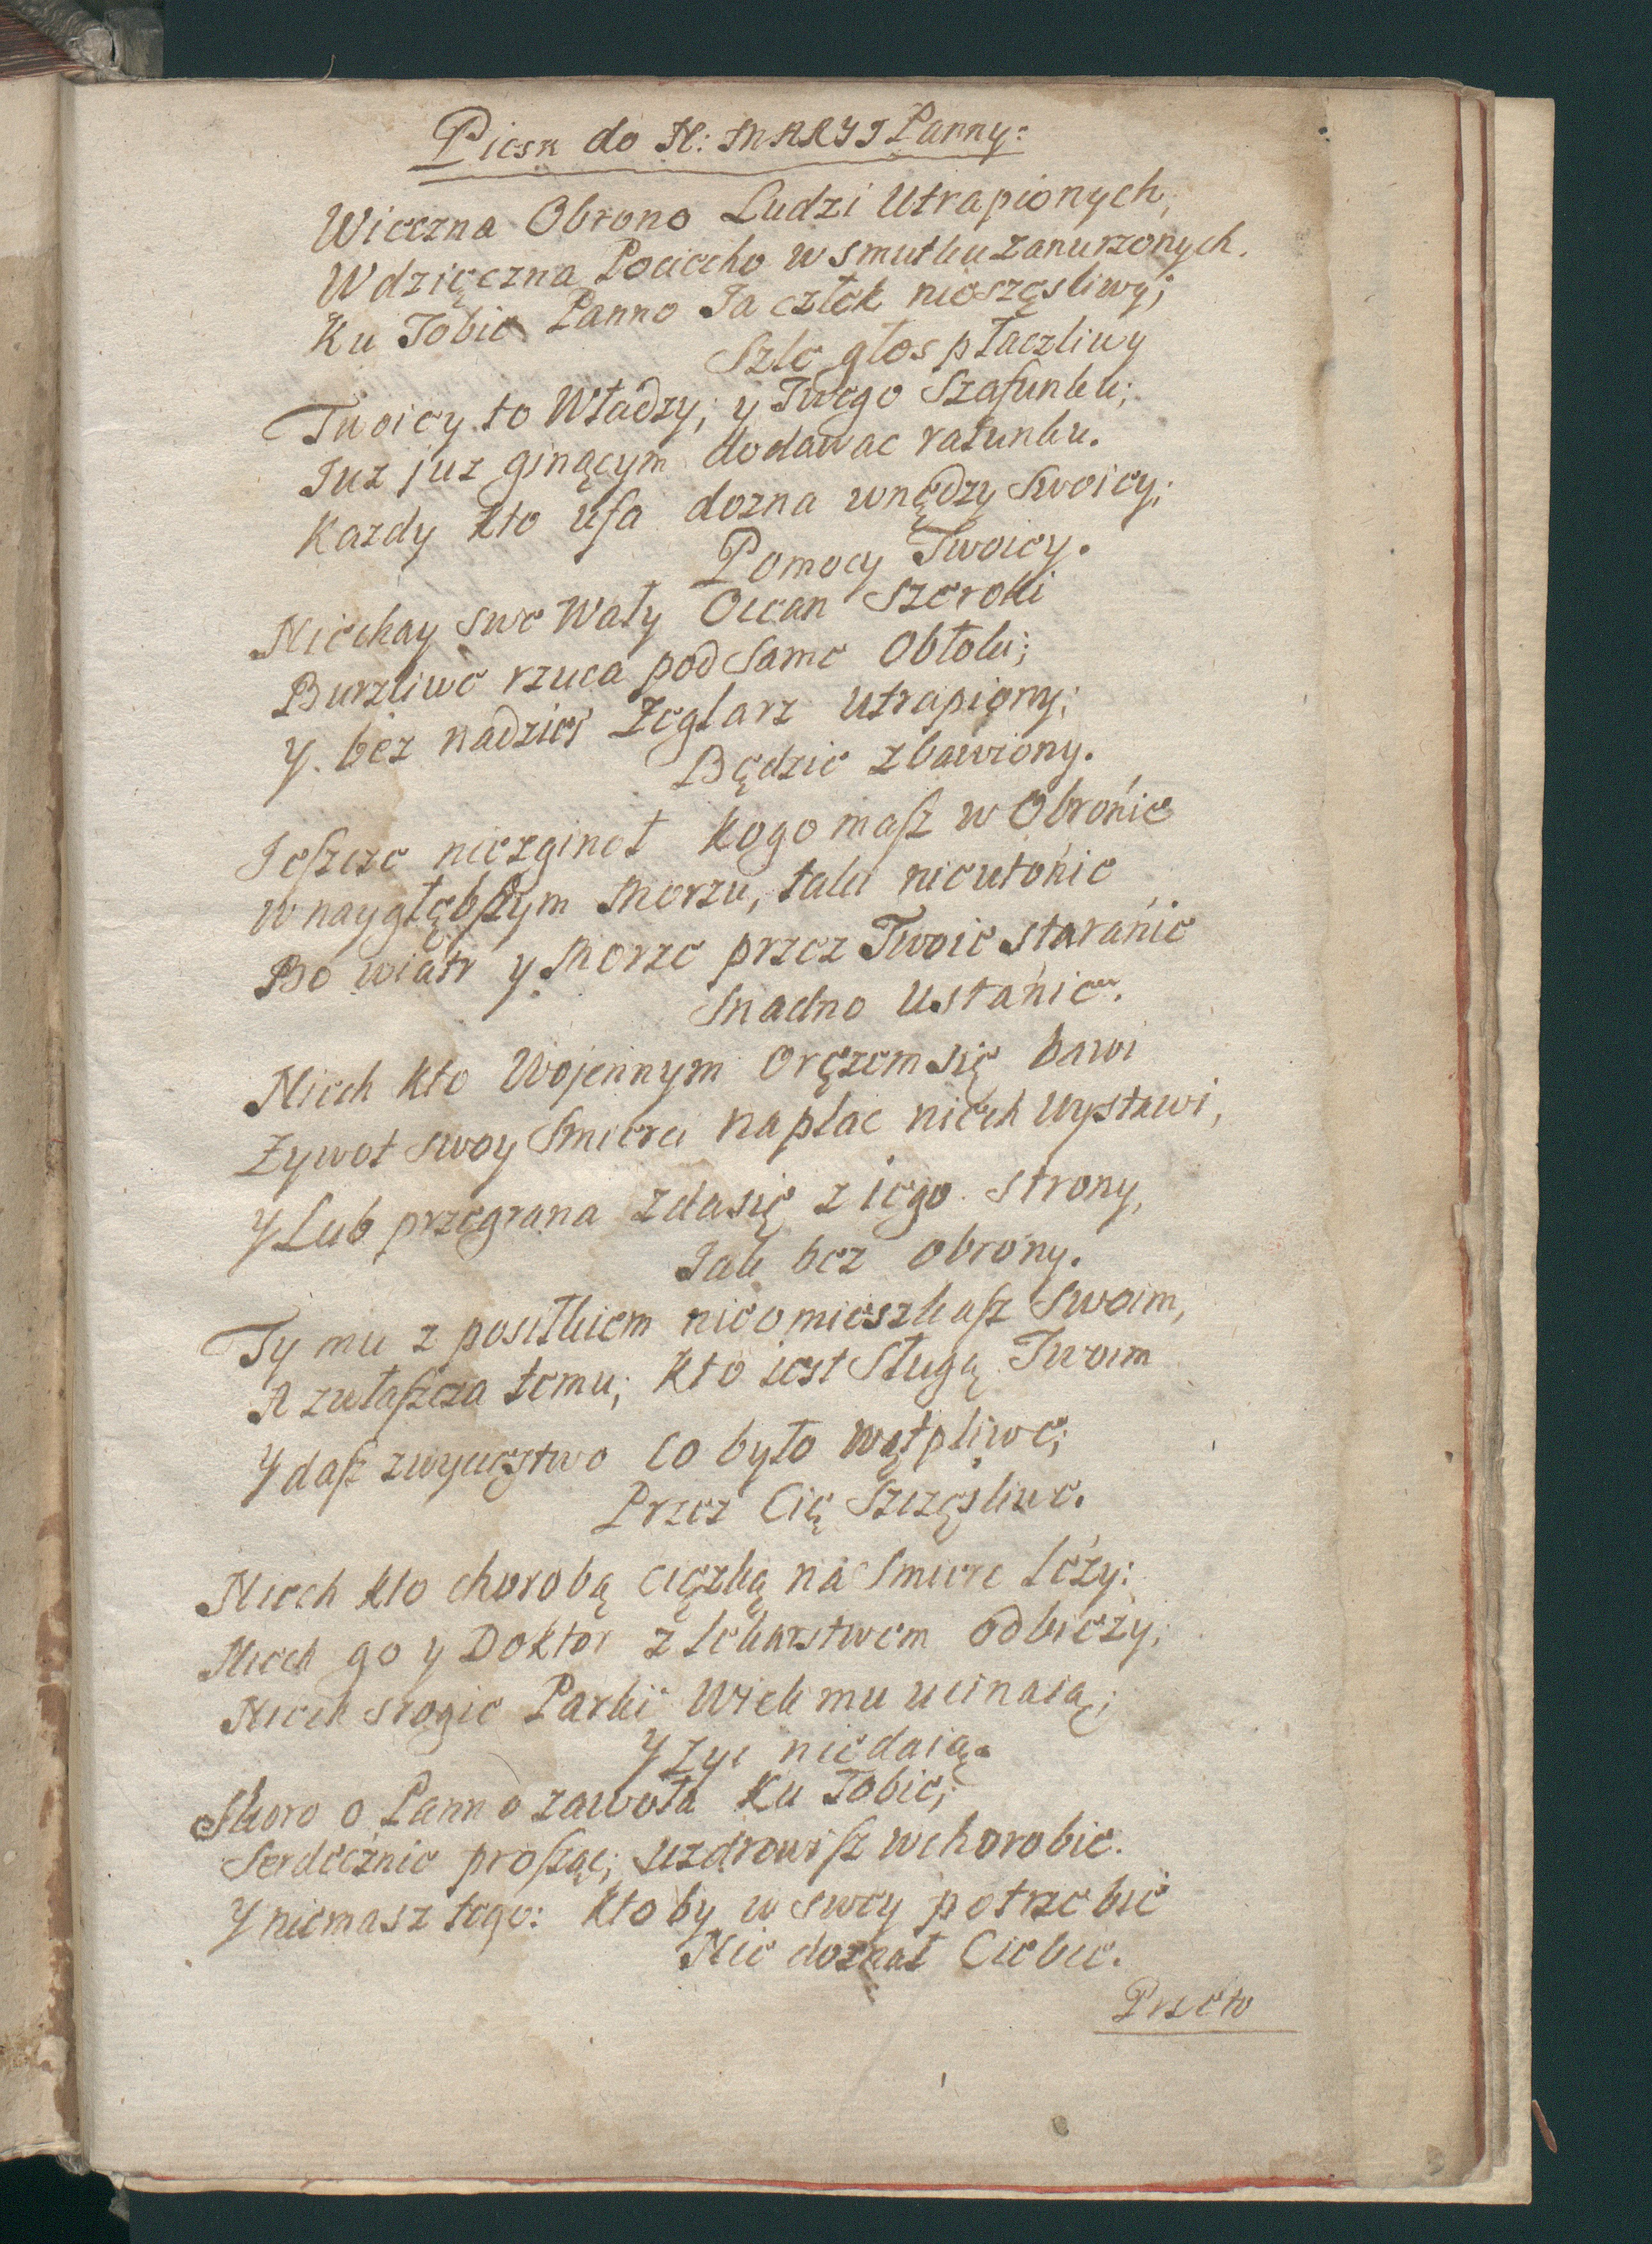 Piesn do N: MARYI Panny:
Wieczna Obrono Ludzi Utrapionych,
Wdzięczna Pociecho w smutku zanurzonych.
Ku Tobie Panno Ja człek nieszęsliwy;
Szle głos płaczliwy
Twoiey to Władzy; y Twego Szafunku;
Juz juz ginącym dodawac ratunku.
Kazdy kto ufa dozna wnędzy Swoiey;
Pomocy Twoiey.
Niechay swe Wały Ocean Szeroki
Burzliwe rzuca pod Same Obłoki;
Y. bez nadziei Zeglarz utrapiony;
Będzie zbawiony.
Jeszcze niezginoł kogo masz w Obronie
w naygłębszym Morzu, taki nieutonie
Bo wiatr y Morze przez Twoie staranie
Snadno Ustanie.
Niech kto Wojennym oręzem się bawi
Zywot swoy Smierci na plac niech wystawi,
Y Lub przegrana zda się z iego strony,
Jak bez obrony.
Ty mu z posiłkiem nieomieszkasz Swoim,
A zwłaszcza temu; kto iest Sługą Twoim
Y dasz zwycęztwo co było wątpliwe;
Przez Cię Szczęsliwe.
Niech kto chorobą cięzką na Smierc lezy:
Niech go y Doktor z lekarstwem odbiezy;
Niech srogie Parki Wiek mu ucinaią;
Y zyc niedaią.
Skoro o Panno zawoła Ku Tobie;
Serdecznie prosząc; uzdrowisz wchorobie.
Y niemasz tego: kto by w swey potrzebie
Nie doznał Ciebie.
Przeto